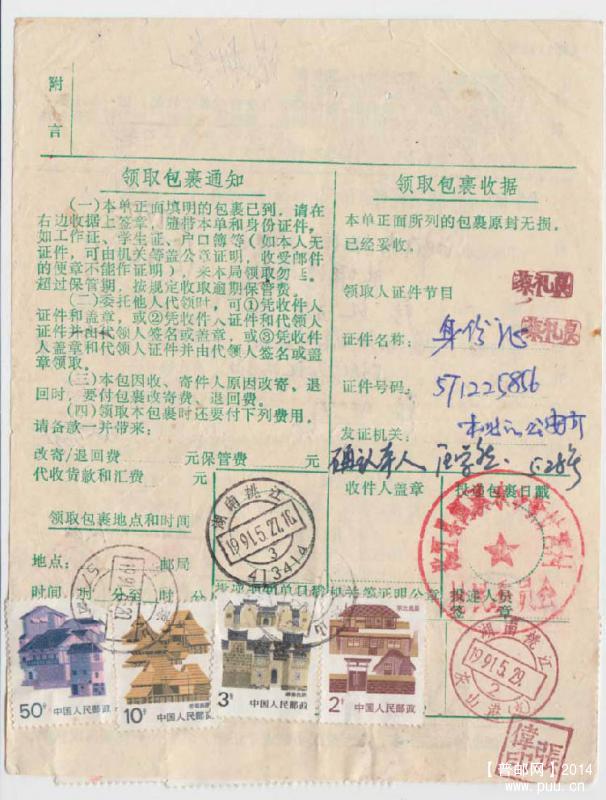 附
言
领取包裹通知
(一)本单正面填明的包裹已到,请在
右边收据上签章,随带本单和身份证件,
如工作证、学生证、户口簿等(如本人无
证件,可由机关等盖公章证明,收受邮件
的便章不能作证明),来本局领取勿
超过保管期,按规定收取逾期保管费。
(二)委托他人代领时,可①凭收件人
证件和盖章,或②凭收件人证件和代领人
证件并由代领人签名或盖章,或③凭收件
人盖章和代领人证件并由代领人签名或盖
章领取。
(三)本包因收、寄件人原因改寄、退
回时,要付包裹改寄费、退回费。
(四)领取本包裹时还要付下列费用。
请备款一并带来:
改寄/退回费 元保管费 元
代收货款和汇费 元
领取包裹地点和时间
地点: 邮局
时间 时 分至 时 分
领取包裹收据
本单正面所列的包裹原封无损,
已经妥收。
领取人证件节目
证件名称: 身份证
证件号码: 571225856
发证机关:
确认本人
收件人盖章 投递包裹日戳
投递人员
签章
湖南桃江
1991.5.27.16
3
413414
湖南桃江
1991.5.29
2
50分 中国人民邮政
10分 中国人民邮政
3分 中国人民邮政
2分 中国人民邮政
【普邮网】2014
www.puu.cn